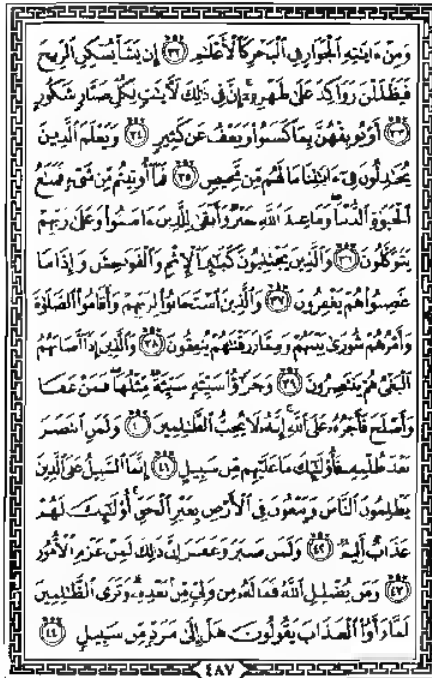 وَمِنْ ءَايَٰتِهِ ٱلْجَوَارِ فِى ٱلْبَحْرِ كَٱلْأَعْلَٰمِ ﴿٣٢﴾ إِن يَشَأْ يُسْكِنِ ٱلرِّيحَ
فَيَظْلَلْنَ رَوَاكِدَ عَلَىٰ ظَهْرِهِۦٓ ۚ إِنَّ فِى ذَٰلِكَ لَءَايَٰتٍ لِّكُلِّ صَبَّارٍ شَكُورٍ
﴿٣٣﴾ أَوْ يُوبِقْهُنَّ بِمَا كَسَبُوا۟ وَيَعْفُ عَن كَثِيرٍ ﴿٣٤﴾ وَيَعْلَمَ ٱلَّذِينَ
يُجَٰدِلُونَ فِىٓ ءَايَٰتِنَا مَا لَهُم مِّن مَّحِيصٍ ﴿٣٥﴾ فَمَآ أُوتِيتُم مِّن شَىْءٍ فَمَتَٰعُ
ٱلْحَيَوٰةِ ٱلدُّنْيَا ۖ وَمَا عِندَ ٱللَّهِ خَيْرٌ وَأَبْقَىٰ لِلَّذِينَ ءَامَنُوا۟ وَعَلَىٰ رَبِّهِمْ
يَتَوَكَّلُونَ ﴿٣٦﴾ وَٱلَّذِينَ يَجْتَنِبُونَ كَبَٰٓئِرَ ٱلْإِثْمِ وَٱلْفَوَٰحِشَ وَإِذَا مَا
غَضِبُوا۟ هُمْ يَغْفِرُونَ ﴿٣٧﴾ وَٱلَّذِينَ ٱسْتَجَابُوا۟ لِرَبِّهِمْ وَأَقَامُوا۟ ٱلصَّلَوٰةَ
وَأَمْرُهُمْ شُورَىٰ بَيْنَهُمْ وَمِمَّا رَزَقْنَٰهُمْ يُنفِقُونَ ﴿٣٨﴾ وَٱلَّذِينَ إِذَآ أَصَابَهُمُ
ٱلْبَغْىُ هُمْ يَنتَصِرُونَ ﴿٣٩﴾ وَجَزَٰٓؤُا۟ سَيِّئَةٍ سَيِّئَةٌ مِّثْلُهَا ۖ فَمَنْ عَفَا
وَأَصْلَحَ فَأَجْرُهُۥ عَلَى ٱللَّهِ ۚ إِنَّهُۥ لَا يُحِبُّ ٱلظَّٰلِمِينَ ﴿٤٠﴾ وَلَمَنِ ٱنتَصَرَ
بَعْدَ ظُلْمِهِۦ فَأُو۟لَٰٓئِكَ مَا عَلَيْهِم مِّن سَبِيلٍ ﴿٤١﴾ إِنَّمَا ٱلسَّبِيلُ عَلَى ٱلَّذِينَ
يَظْلِمُونَ ٱلنَّاسَ وَيَبْغُونَ فِى ٱلْأَرْضِ بِغَيْرِ ٱلْحَقِّ ۚ أُو۟لَٰٓئِكَ لَهُمْ
عَذَابٌ أَلِيمٌ ﴿٤٢﴾ وَلَمَن صَبَرَ وَغَفَرَ إِنَّ ذَٰلِكَ لَمِنْ عَزْمِ ٱلْأُمُورِ
﴿٤٣﴾ وَمَن يُضْلِلِ ٱللَّهُ فَمَا لَهُۥ مِن وَلِىٍّ مِّنۢ بَعْدِهِۦ ۗ وَتَرَى ٱلظَّٰلِمِينَ
لَمَّا رَأَوُا۟ ٱلْعَذَابَ يَقُولُونَ هَلْ إِلَىٰ مَرَدٍّ مِّن سَبِيلٍ ﴿٤٤﴾
٤٨٧